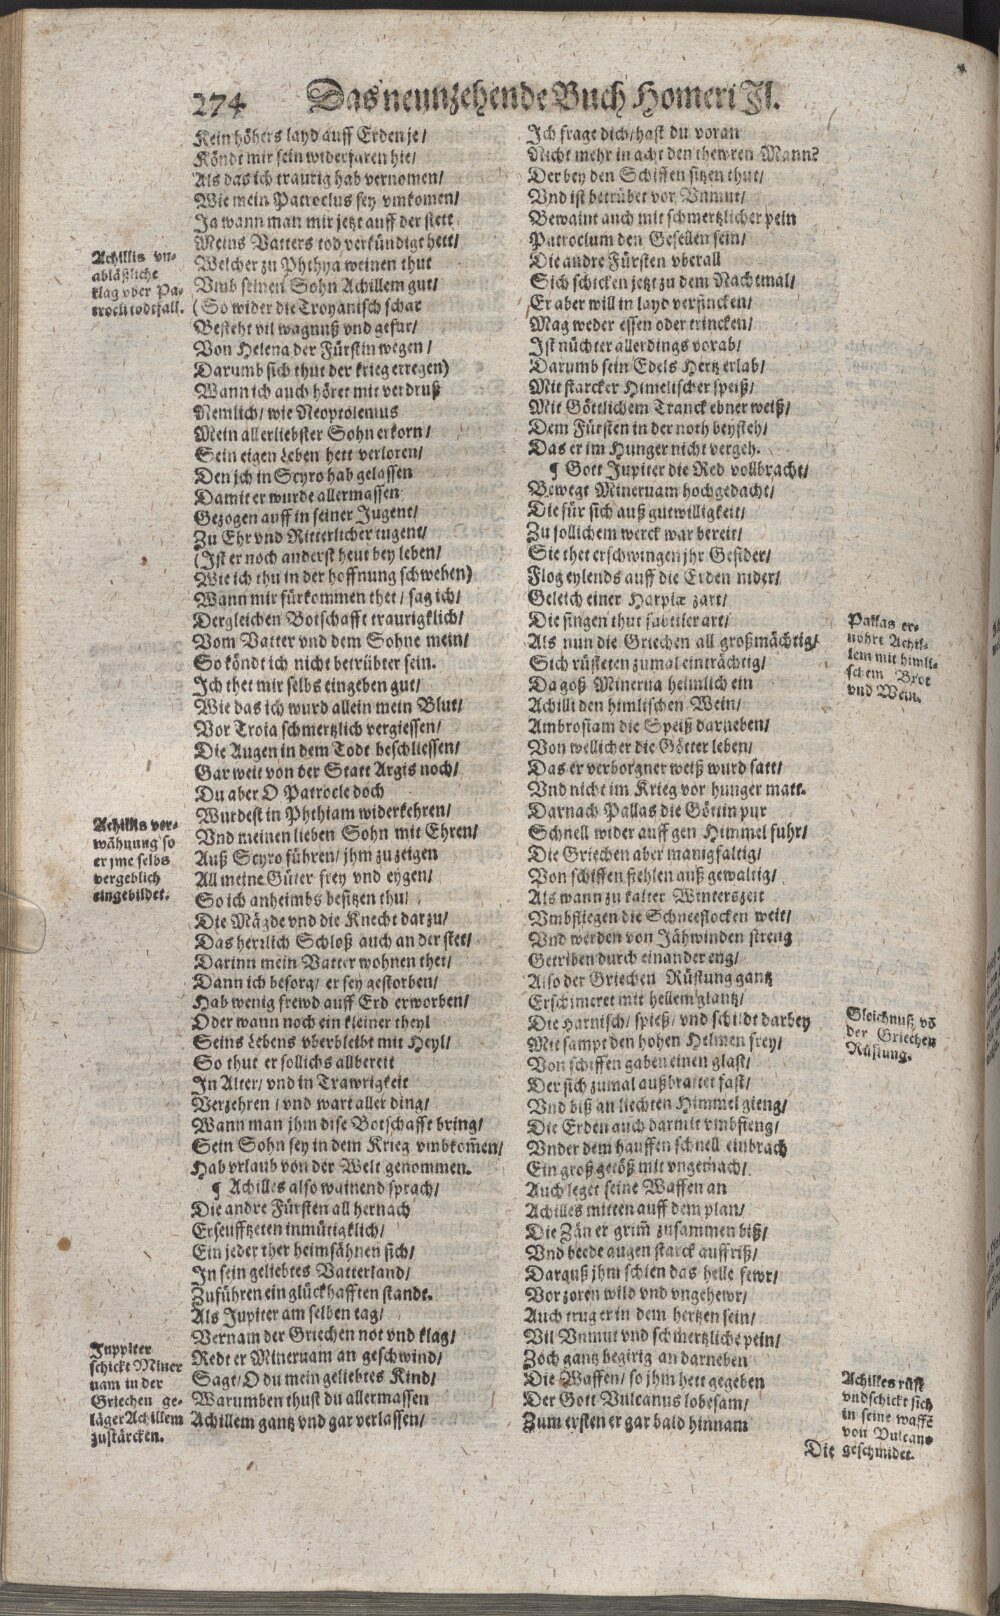 274 Das neunzehende Buch Homeri Il.
Kein höhers layd auff Erden je/
Köndt mir sein widerfaren hie/
Als das ich traurig hab vernomen/
Wie mein Patroclus sey vmkomen/
Ja wann man mir jetzt auff der stett
Meins Vatters tod verkündigt hett/
Welcher zu Phthya weinen thut
Vmb seinen Sohn Achillem gut/
(So wider die Troyanisch schar
Besteht vil wagnuß vnd gefar/
Von Helena der Fürstin wegen/
Darumb sich thut der krieg erregen)
Wann ich auch höret mit verdruß
Nemlich/ wie Neoptolemus
Mein allerliebster Sohn erkorn/
Sein eigen Leben hett verloren/
Den jch in Scyro hab gelassen
Damit er wurde allermassen
Gezogen auff in seiner Jugent/
Zu Ehr vnd Ritterlicher tugent/
(Ist er noch anderst heut bey leben/
Wie ich thu in der hoffnung schweben)
Wann mir fürkommen thet/ sag ich/
Dergleichen Botschafft traurigklich/
Vom Vatter vnd dem Sohne mein/
So köndt ich nicht betrübter sein.
Ich thet mir selbs eingeben gut/
Wie das ich wurd allein mein Blut/
Vor Troia schmertzlich vergiessen/
Die Augen in dem Todt beschliessen/
Gar weit von der Statt Argis noch/
Du aber O Patrocle doch
Wurdest in Phthiam widerkehren/
Vnd meinen lieben Sohn mit Ehren/
Auß Scyro führen/ jhm zu zeigen
All meine Güter frey vnd eygen/
So ich anheimbs besitzen thu/
Die Mägde vnd die Knecht darzu/
Das herrlich Schloß auch an der stet/
Darinn mein Vatter wohnen thet/
Dann ich besorg/ er sey gestorben/
Hab wenig frewd auff Erd erworben/
Oder wann noch ein kleiner theyl
Seins Lebens vberbleibt mit Heyl/
So thut er sollichs allbereit
In Alter/ vnd in Trawrigkeit
Verzehren/ vnd wart aller ding/
Wann man jhm dise Botschafft bring/
Sein Sohn sey in dem Krieg vmbkom̃en/
Hab vrlaub von der Welt genommen.
¶ Achilles also wainend sprach/
Die andre Fürsten all hernach
Erseufftzeten inmütigklich/
Ein jeder ther heimsähnen sich/
In sein geliebtes Vatterland/
Zuführen ein glückhafften standt.
Als Jupiter am selben tag/
Vernam der Griechen not vnd klag/
Redt er Mineruam an geschwind/
Sagt/ O du mein geliebtes Kind/
Warumben thust du allermassen
Achillem gantz vnd gar verlassen/
Achillis vn-
abläßliche
klag vber Pa-
trocli todtfall.
Achillis ver-
wähnung so
er jme selbs
vergeblich
eingebildet.
Juppiter
schickt Miner
uam in der
Griechen ge-
läger Achillem
zustärcken.
Ich frage dich/ hast du voran
Nicht mehr in acht den thewren Mann?
Der bey den Schiffen sitzen thut/
Vnd ist betrübet vor Vnmut/
Bewaint auch mit schmertzlicher pein
Patroclum den Gesellen sein/
Die andre Fürsten vberall
Sich schicken jetzt zu dem Nachtmal/
Er aber will in layd versincken/
Mag weder essen oder trincken/
Ist nüchter allerdings vorab/
Darumb sein Edels Hertz erlab/
Mit starcker Himelischer speiß/
Mit Göttlichem Tranck ebner weiß/
Dem Fürsten in der noth beysteh/
Das er im Hunger nicht vergeh.
¶ Gott Jupiter die Red vollbracht/
Bewegt Mineruam hochgedacht/
Die für sich auß gutwilligkeit/
Zu sollichem werck war bereit/
Sie thet erschwingen jhr Gefider/
Flog eylends auff die Erden nider/
Geleich einer Harpiæ zart/
Die singen thut subtiler art/
Als nun die Griechen all großmächtig/
Sich rüsteten zumal einträchtig/
Da goß Minerua heimlich ein
Achilli den himlischen Wein/
Ambrosiam die Speiß darneben/
Von wellicher die Götter leben/
Das er verborgner weiß wurd satt/
Vnd nicht im Krieg vor hunger matt.
Darnach Pallas die Göttin pur
Schnell wider auff gen Himmel fuhr/
Die Griechen aber manigfaltig/
Von schiffen fiehlen auß gewaltig/
Als wann zu kalter Winterszeit
Vmbfliegen die Schneeflocken weit/
Vnd werden von Jähwinden streng
Getriben durch einander eng/
Also der Griechen Rüstung gantz
Erschimeret mit hellem glantz/
Die Harnisch/ spieß/ vnd schildt darbey
Mit sampt den hohen Helmen frey/
Von schiffen gaben einen glast/
Der sich zumal außbraitet fast/
Vnd biß an liechten Himmel gieng/
Die Erden auch darmit vmbfieng/
Vnder dem hauffen schnell einbrach
Ein groß getöß mit vngemach/
Auch leget seine Waffen an
Achilles mitten auff dem plan/
Die Zän er grim̃ zusammen biß/
Vnd beede augen starck auffriß/
Darauß jhm schien das helle fewr/
Vor zoren wild vnd vngehewr/
Auch trug er in dem hertzen sein/
Vil Vnmut vnd schmertzliche pein/
Zoch gantz begirig an darneben
Die Waffen/ so jhm hett gegeben
Der Gott Vulcanus lobesam/
Zum ersten er gar bald hinnam
Pallas er-
nöhrt Achil-
lem mit himli-
schem Brot
vnd Wein.
Gleichnuß võ
der Griechen
Rüstung.
Achilles rüst
vnd schickt sich
in seine waffẽ
von Vulcano
geschmidet.
Die